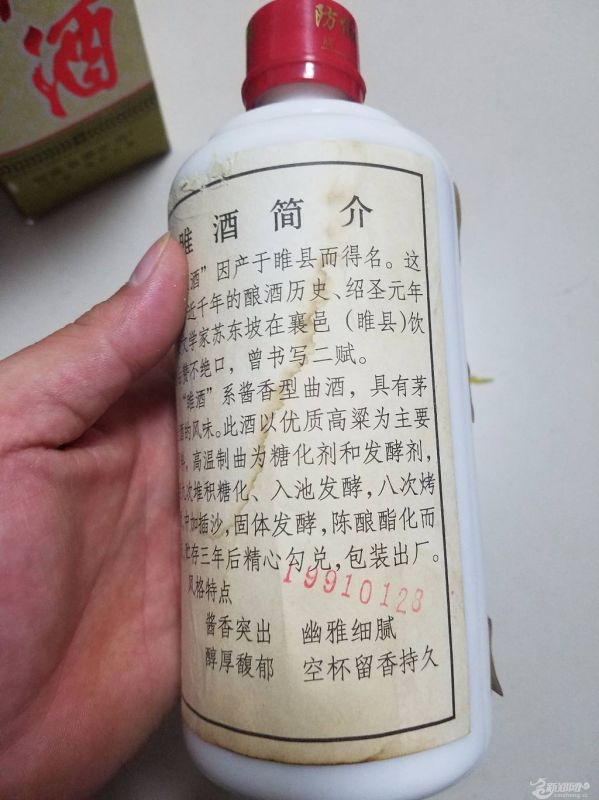 酒
防伪
睢酒简介
酒”因产于睢县而得名。这
近千年的酿酒历史、绍圣元年
文学家苏东坡在襄邑（睢县）饮
后赞不绝口，曾书写二赋。
“睢酒”系酱香型曲酒，具有茅
酒的风味。此酒以优质高粱为主要
料，高温制曲为糖化剂和发酵剂，
九次堆积糖化、入池发酵，八次烤
中加插沙，固体发酵，陈酿酯化而
贮存三年后精心勾兑，包装出厂。
风格特点
19910128
酱香突出 幽雅细腻
醇厚馥郁 空杯留香持久